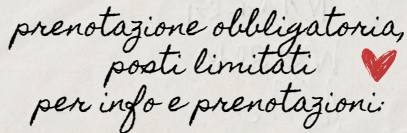 prenotazione obbligatoria,
posti limitati
per info e prenotazioni: